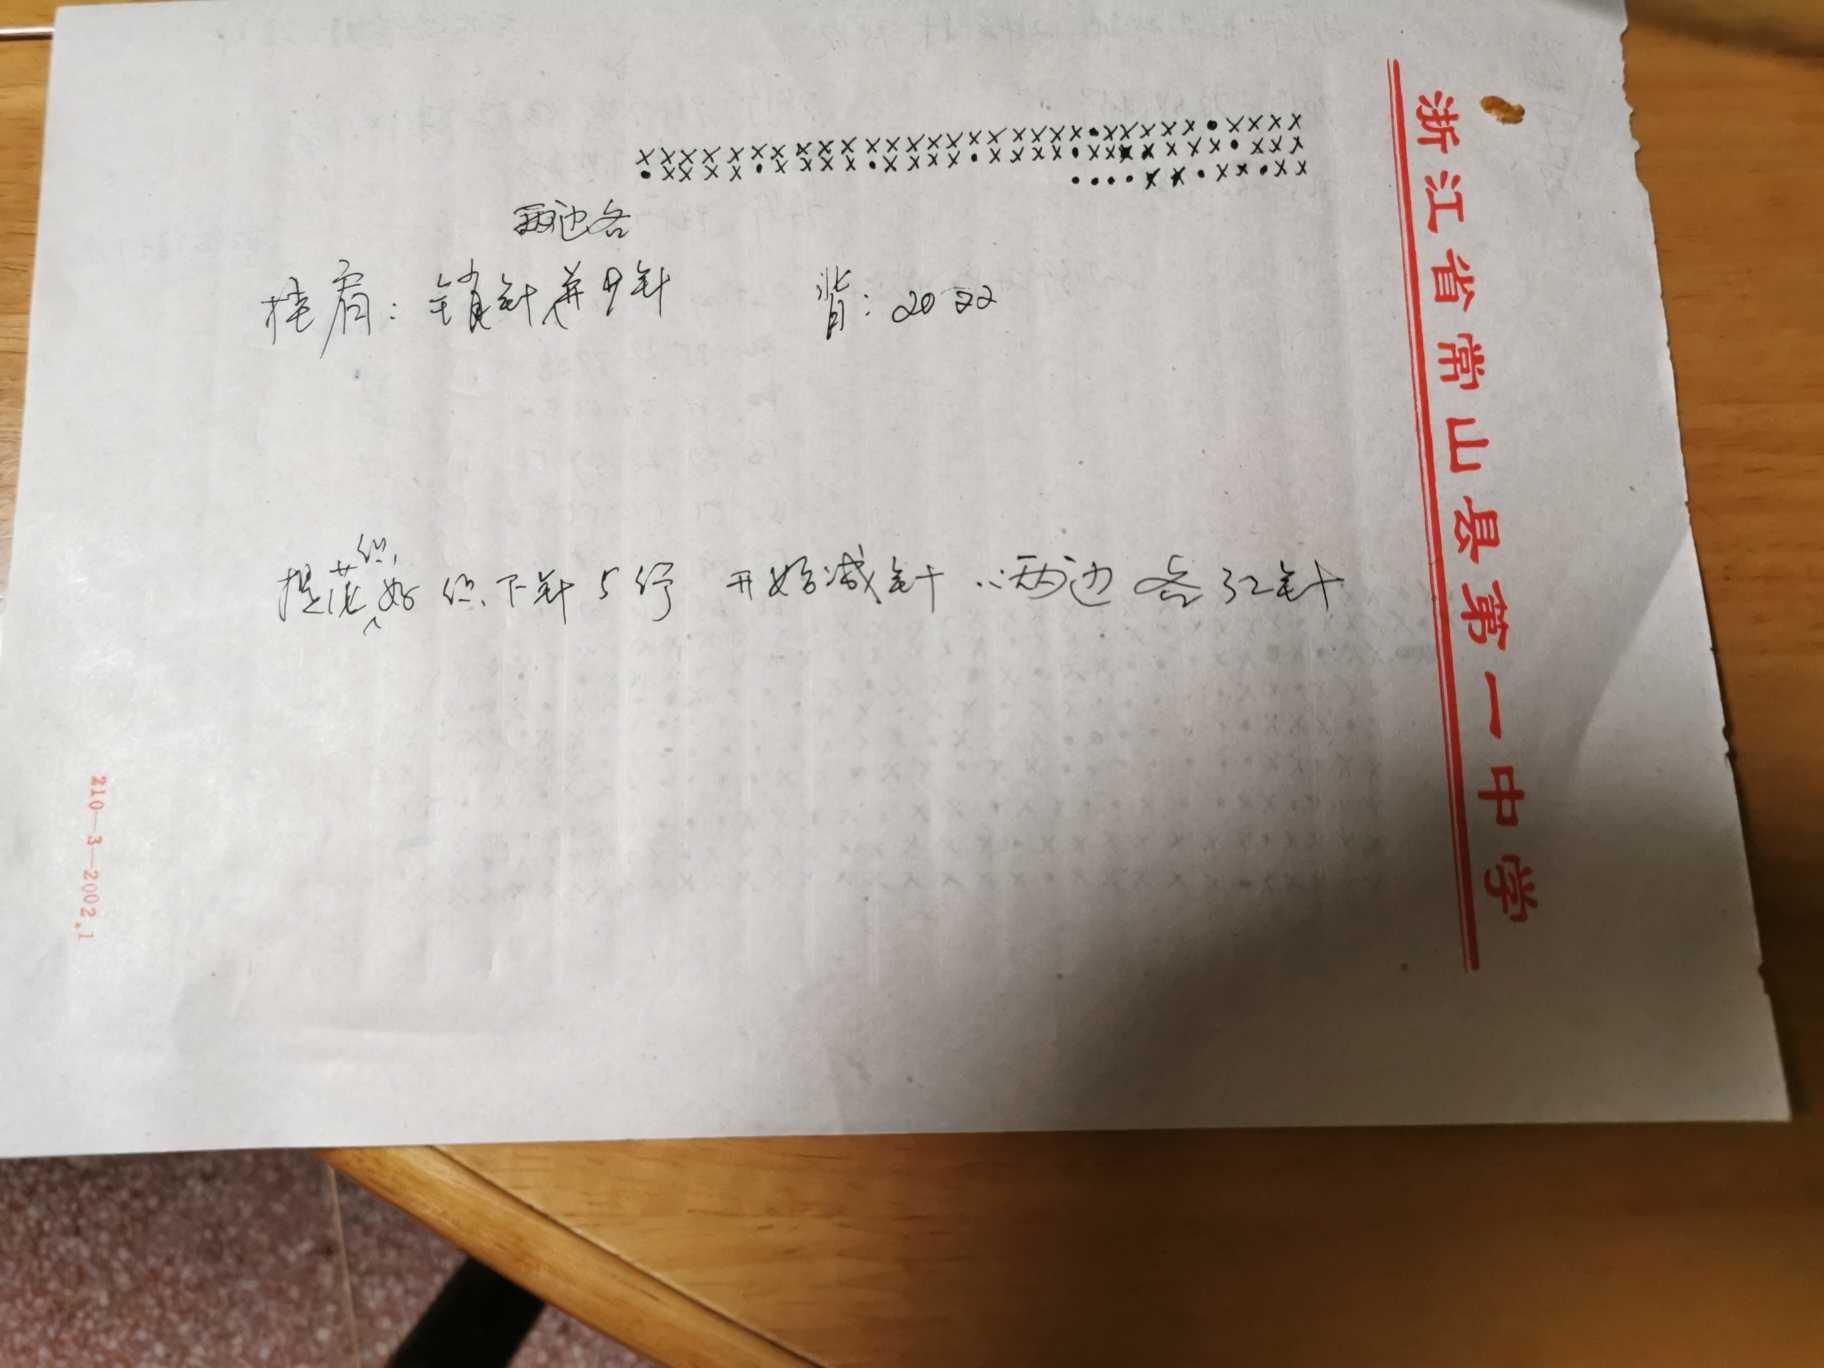 浙江省常山县第一中学
×××××××××××××××××××××•×××××•××××
××××××××××•××××•××××•×××××××•×××
•×××××•××××
••••××•××•××
两边各
挂肩：锁针并9针 背：2022
织
提花好织下针5行 开始减针∴两边各32针
210—3—2002.1